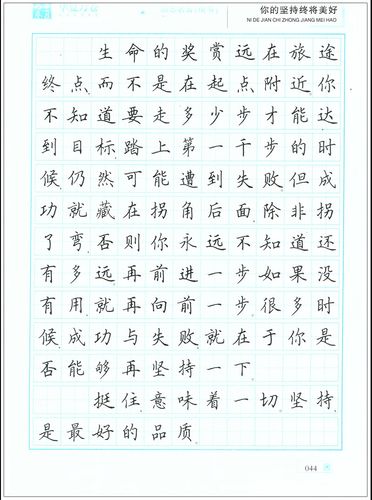 你的坚持终将美好
NI DE JIAN CHI ZHONG JIANG MEI HAO
生命的奖赏远在旅途
终点而不是在起点附近你
不知道要走多少步才能达
到目标踏上第一千步的时
候仍然可能遭到失败但成
功就藏在拐角后面除非拐
了弯否则你永远不知道还
有多远再前进一步如果没
有用就再向前一步很多时
候成功与失败就在于你是
否能够再坚持一下
挺住意味着一切坚持
是最好的品质
044